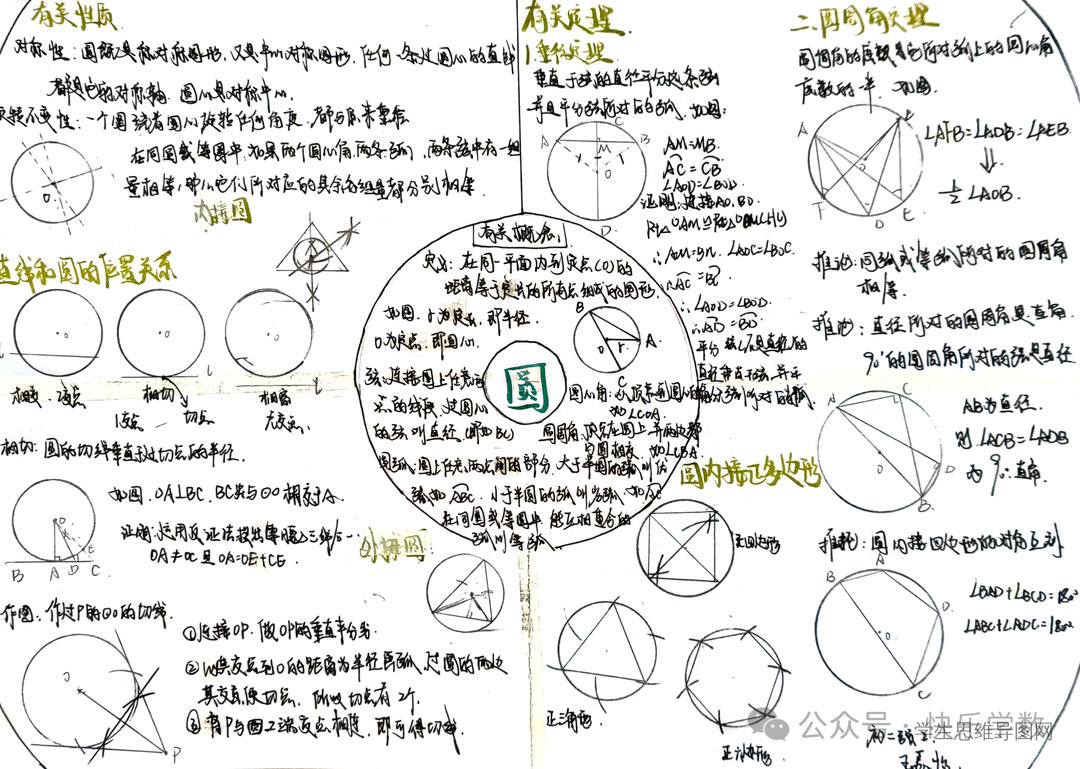 有关性质
对称性：圆既是轴对称图形，又是中心对称图形，任何一条过圆心的直线
都是它的对称轴，圆心是对称中心.
旋转不变性：一个圆绕着圆心旋转任何角度，都与原来重合
在同圆或等圆中，如果两个圆心角，两条弧，两条弦中有一组
量相等，那么它们所对应的其余各组量都分别相等.
内接圆
直线和圆的位置关系
相交 2交点
相切
1交点 切点
相离
无交点
相切：圆的切线垂直于过切点的半径.
如图，OA⊥BC，BC与⊙O相交于A.
证明：运用反证法
OA≠OC且OA=OE+CE.
外接圆
作图：作过P的⊙O的切线.
①连接OP，做OP的垂直平分线.
②以其交点到O的距离为半径画弧，
切点有2个.
③将P与圆上交点相连，即可得切线.
有关概念
定义：在同一平面内到定点(O)的
距离等于定长的所有点组成的图形.
如图，r为定长，即半径.
O为定点，即圆心.
弦：连接圆上任意两
点的线段，过圆心
的弦叫直径（即如BC）
圆
圆心角：顶点在圆心
如∠COA.
圆周角：顶点在圆上，并两边都
与圆相交，如∠CBA
圆弧：圆上任意两点间的部分，大于半圆的弧叫优
弧如ABC，小于半圆的弧叫劣弧，如AC
在同圆或等圆中，能互相重合的
弧叫等弧
有关定理
1.垂径定理
垂直于弦的直径平分这条弦
并且平分弦所对的弧，如图：
AM=MB.
AC=CB
∠AOD=∠BOD.
证明：连接AO，BO.
∴AC=BC
∴∠AOD=∠BOD.
∴AD=BD
平分弦(不是直径)的
直径垂直于弦，并平
分弦所对的弧
二.圆周角定理
圆周角的度数是它所对弧上的圆心角
度数的一半，如图.
∠AFB=∠ADB=∠AEB
½∠AOB.
推论：同弧或等弧所对的圆周角
相等.
推论：直径所对的圆周角是直角.
90°的圆周角所对的弦是直径
AB为直径.
则∠ACB=∠ADB
为90°，直角
推论：圆内接四边形的对角互补
∠BAD+∠BCD=180°
∠ABC+∠ADC=180°
圆内接正多边形
正四边形
正三角形
正六边形
公众号·快乐学数
学生思维导图网